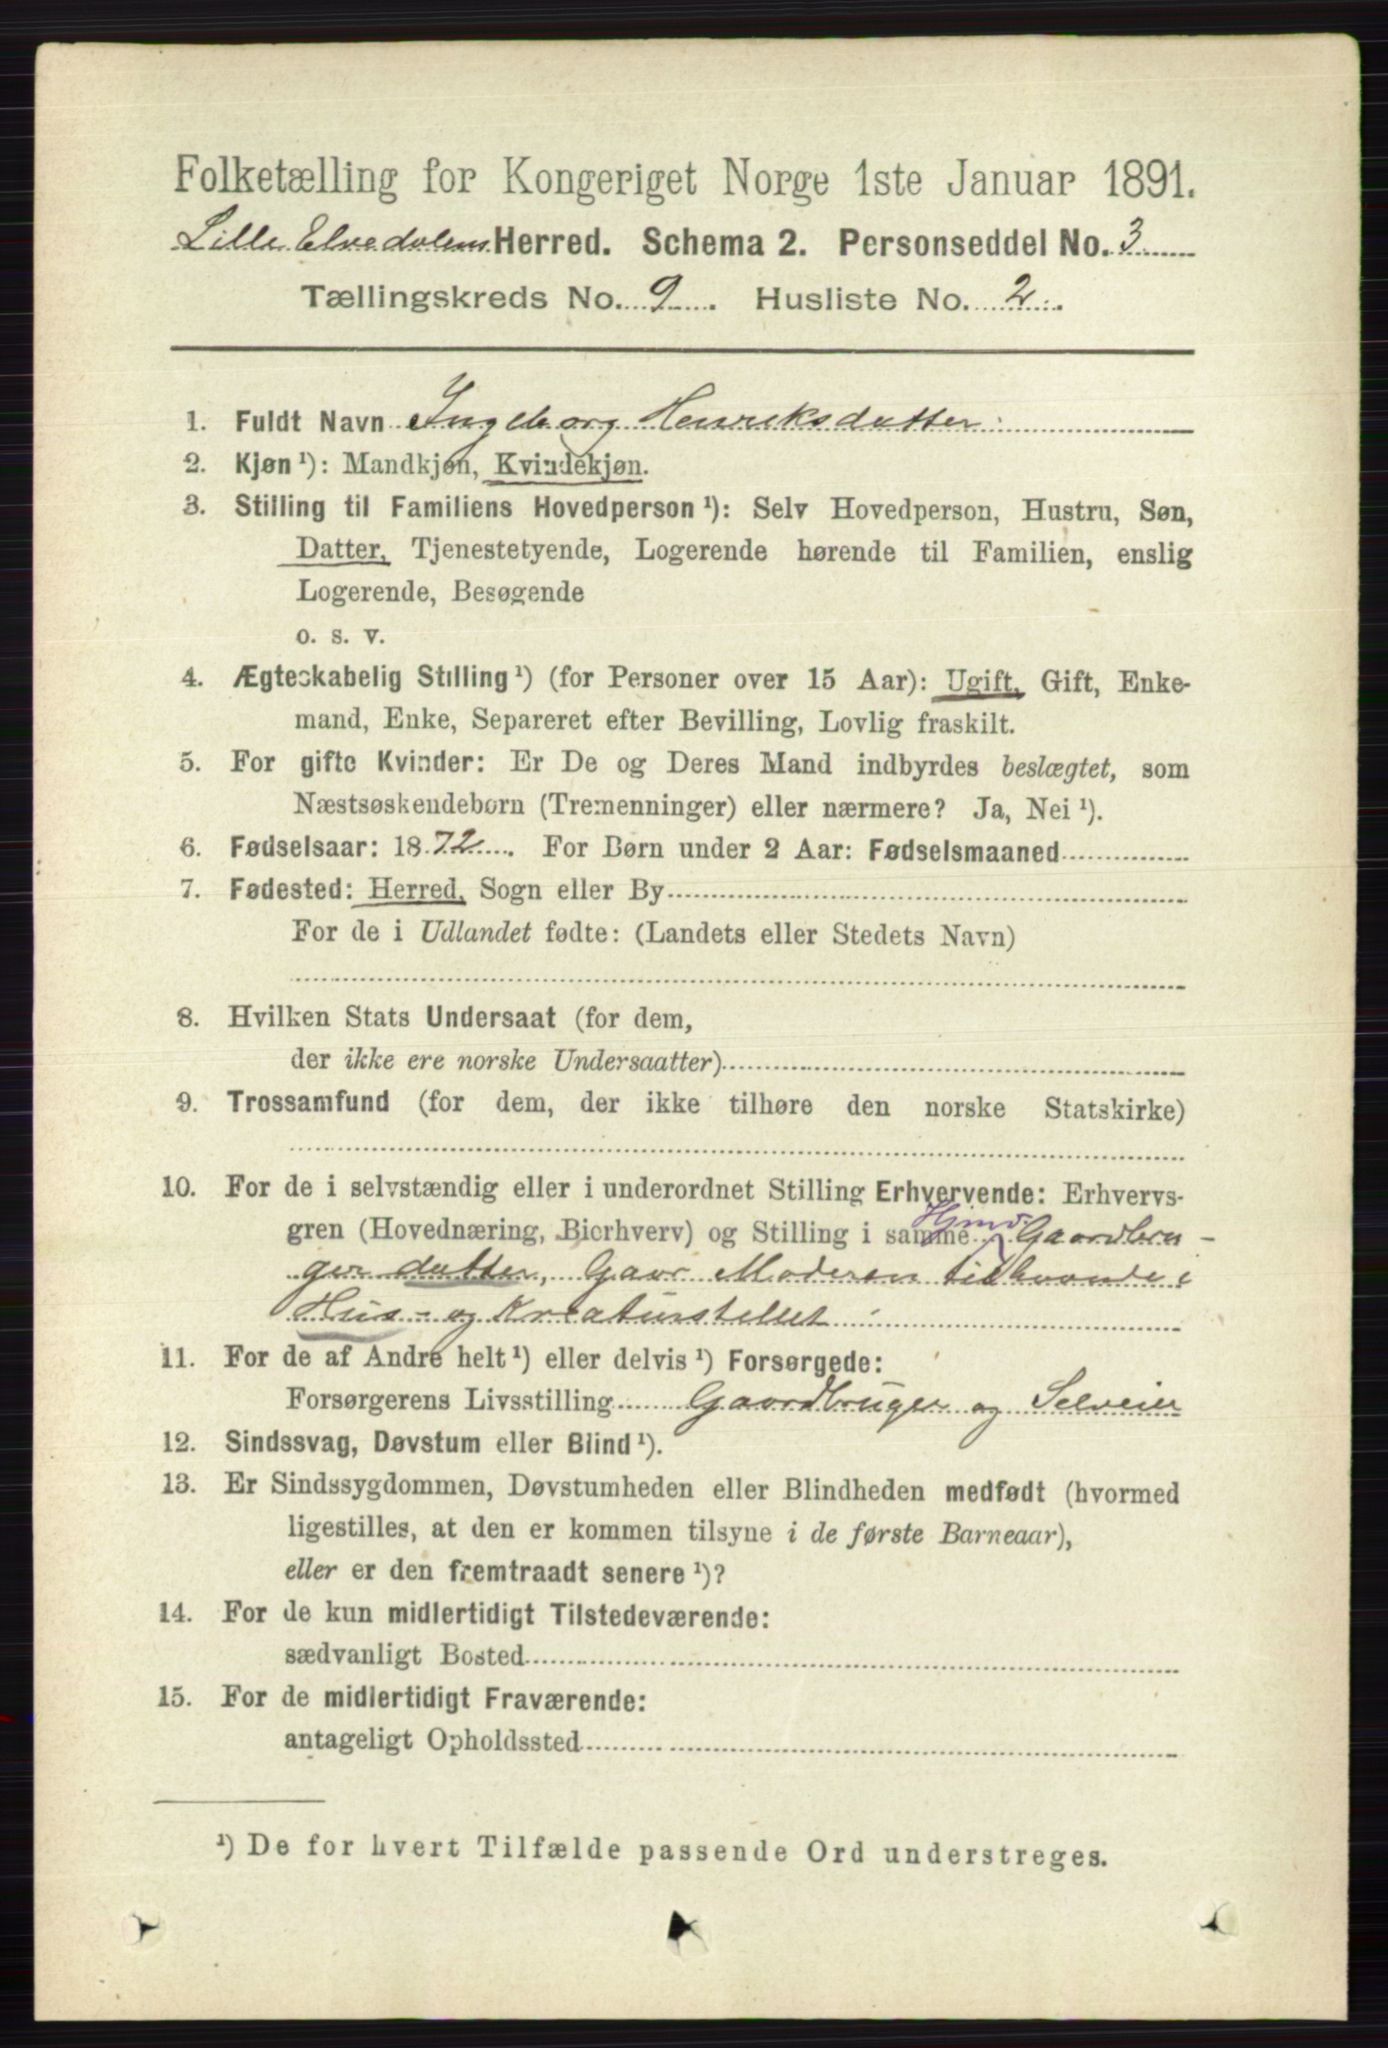 Folketælling for Kongeriget Norge 1ste Januar 1891.
Lille Elvedalens Herred. Schema 2. Personseddel No. 3
Tællingskreds No. 9. Husliste No. 2.
1. Fuldt Navn Ingeborg Henriksdatter
2. Kjøn¹): Mandkjøn, Kvindekjøn.
3. Stilling til Familiens Hovedperson¹): Selv Hovedperson, Hustru, Søn,
Datter, Tjenestetyende, Logerende hørende til Familien, enslig
Logerende, Besøgende
o. s. v.
4. Ægteskabelig Stilling¹) (for Personer over 15 Aar): Ugift, Gift, Enke-
mand, Enke, Separeret efter Bevilling, Lovlig fraskilt.
5. For gifte Kvinder: Er De og Deres Mand indbyrdes beslægtet, som
Næstsøskendebørn (Tremenninger) eller nærmere? Ja, Nei¹).
6. Fødselsaar: 1872. For Børn under 2 Aar: Fødselsmaaned
7. Fødested: Herred, Sogn eller By
For de i Udlandet fødte: (Landets eller Stedets Navn)
8. Hvilken Stats Undersaat (for dem,
der ikke ere norske Undersaatter)
9. Trossamfund (for dem, der ikke tilhøre den norske Statskirke)
10. For de i selvstændig eller i underordnet Stilling Erhvervende: Erhvervs-
gren (Hovednæring, Bierhverv) og Stilling i samme Gaardbru-
gerdatter, Gaar Moderen tilhaande i
Hus- og Kreaturstellet
11. For de af Andre helt¹) eller delvis¹) Forsørgede:
Forsørgerens Livsstilling Gaardbruger og Selveier
12. Sindssvag, Døvstum eller Blind¹).
13. Er Sindssygdommen, Døvstumheden eller Blindheden medfødt (hvormed
ligestilles, at den er kommen tilsyne i de første Barneaar),
eller er den fremtraadt senere¹)?
14. For de kun midlertidigt Tilstedeværende:
sædvanligt Bosted
15. For de midlertidigt Fraværende:
antageligt Opholdssted
¹) De for hvert Tilfælde passende Ord understreges.